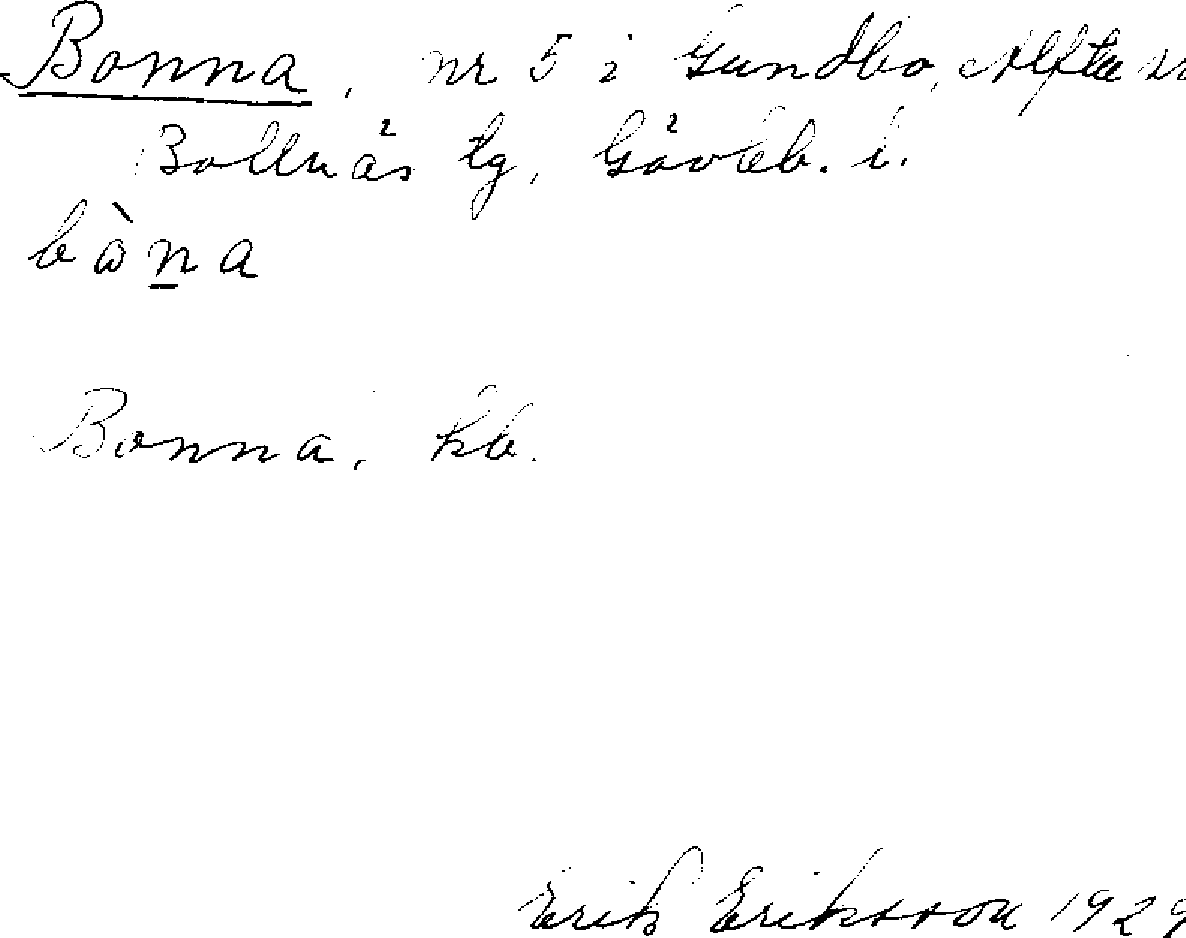 Bonna, nr 5 i Gundbo, Alfta sn
Bollnäs tg, Gävleb. l.
bὼn̲a
Bonna, kb.
Erik Eriksson 1929